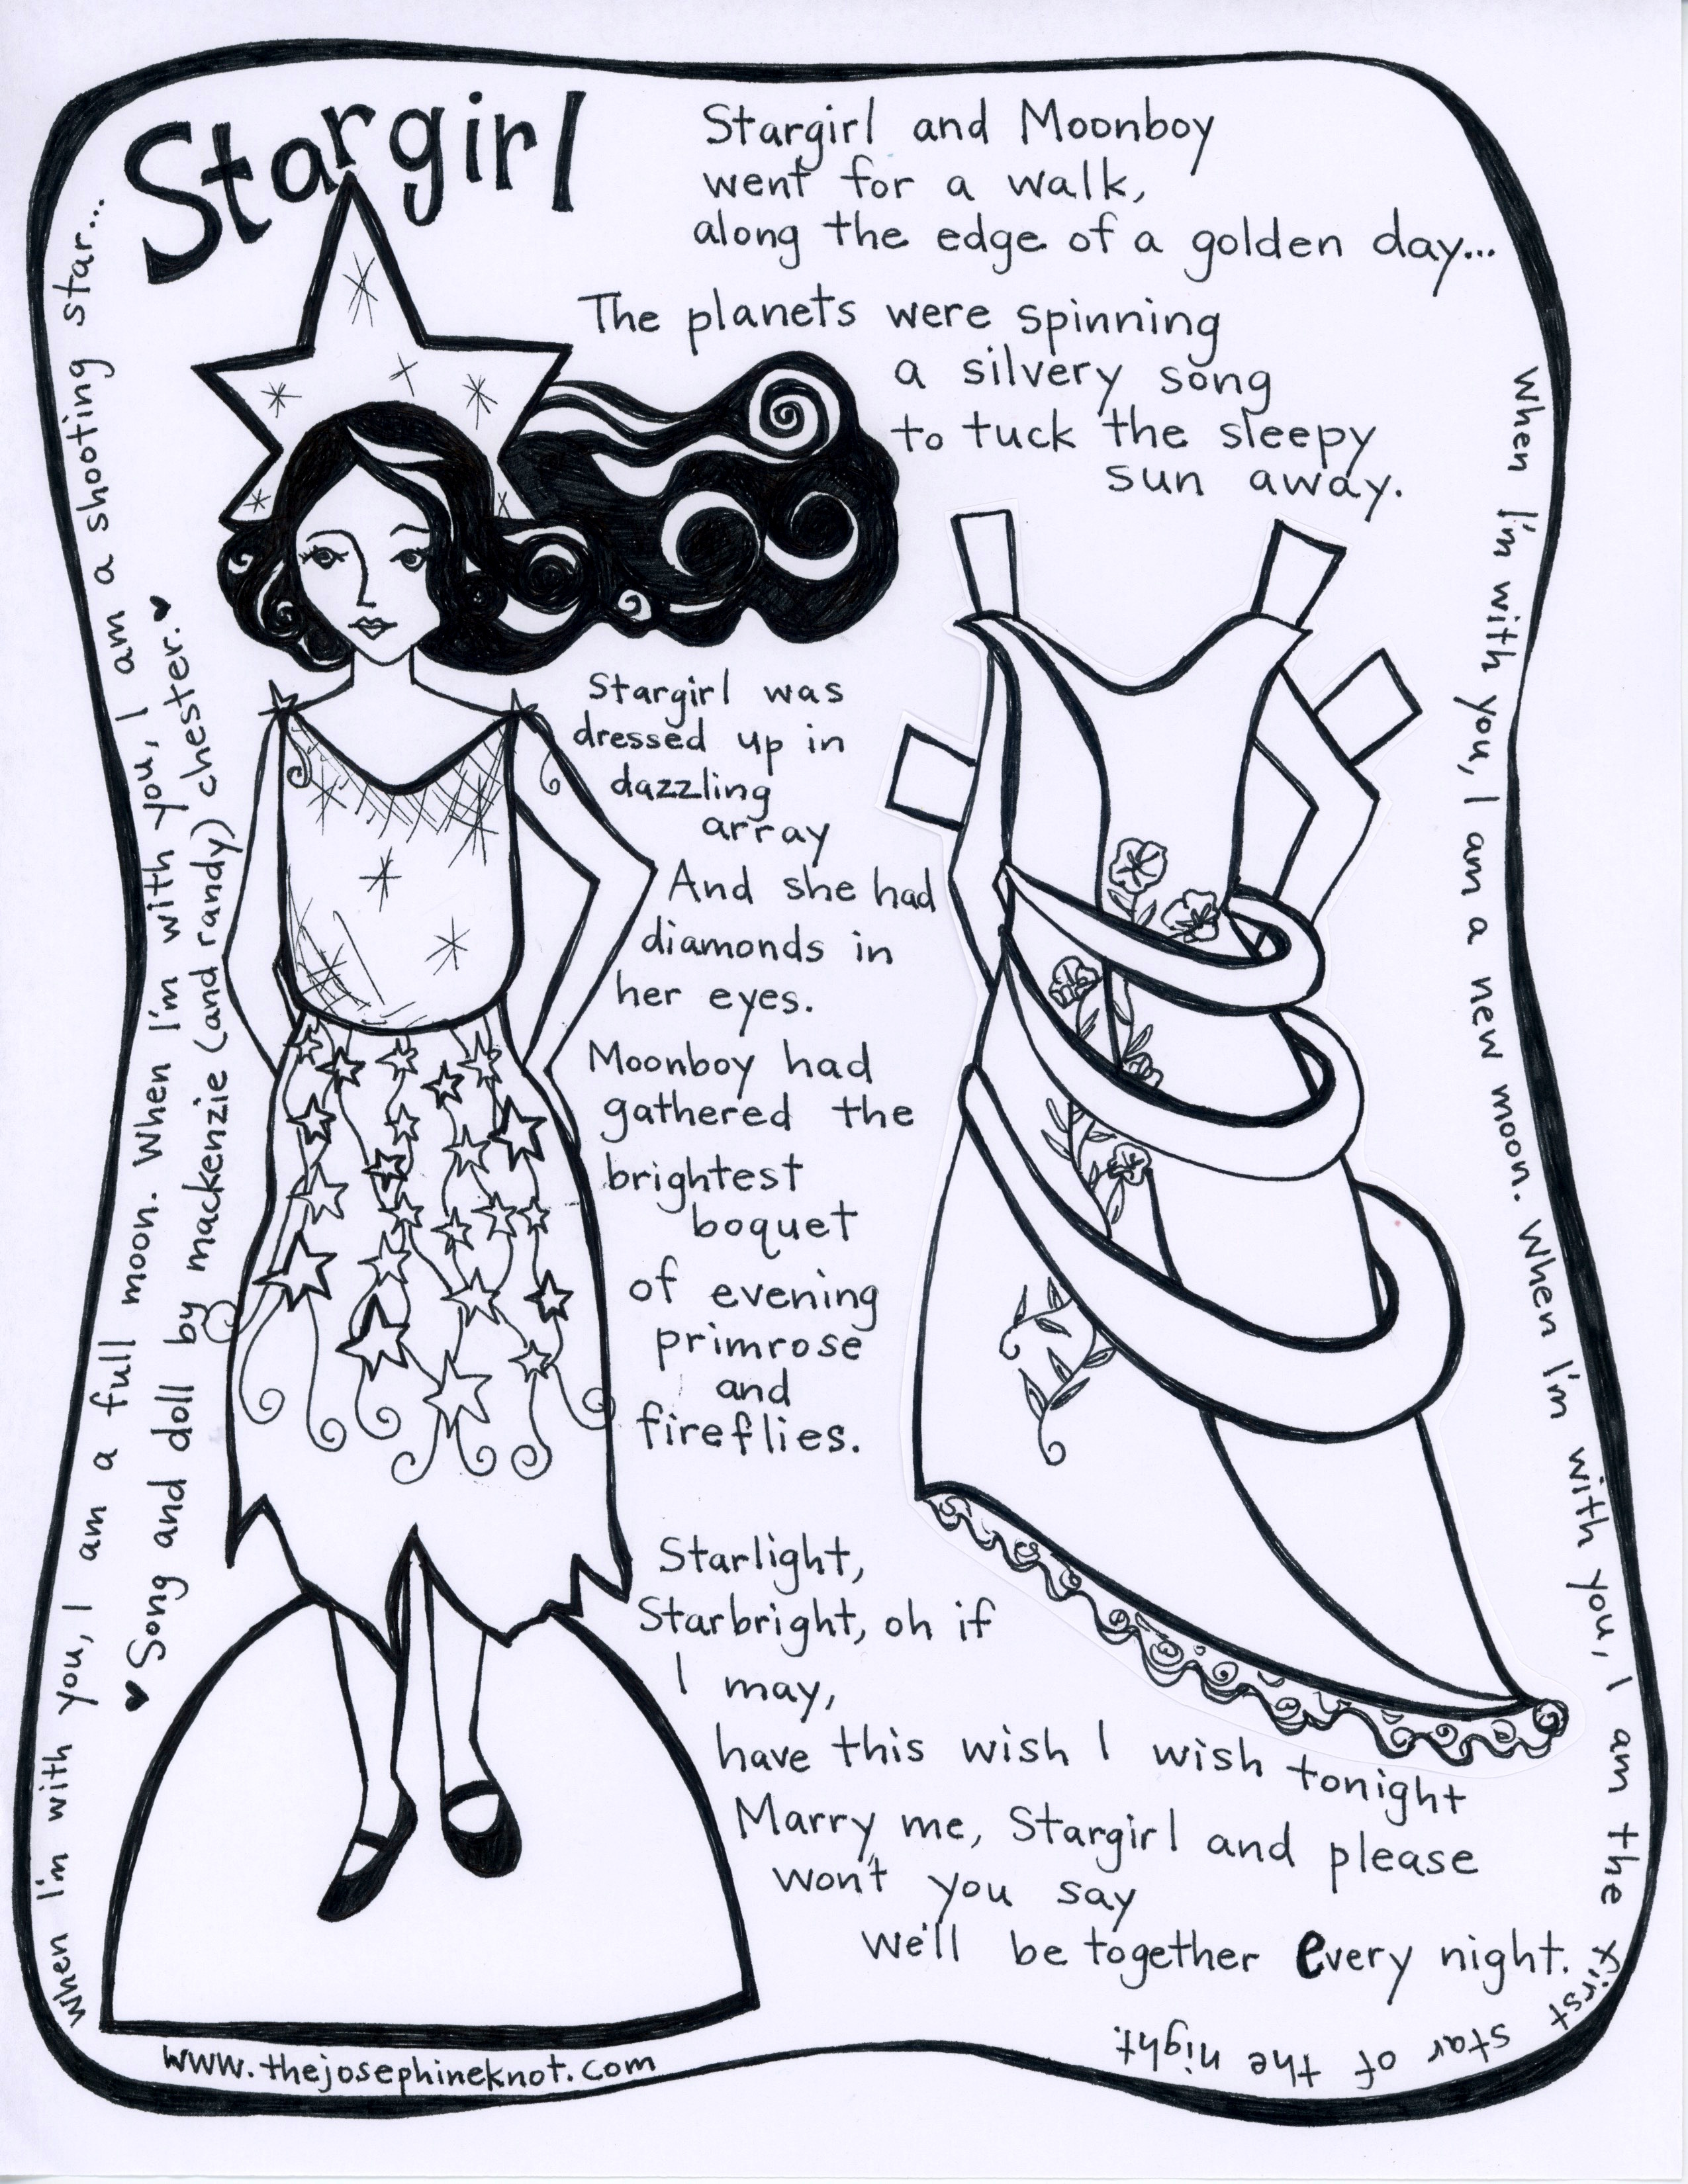 Stargirl
Stargirl and Moonboy
went for a walk,
along the edge of a golden day...
The planets were spinning
a silvery song
to tuck the sleepy
sun away.
Stargirl was
dressed up in
dazzling
array
And she had
diamonds in
her eyes.
Moonboy had
gathered the
brightest
boquet
of evening
primrose
and
fireflies.
Starlight,
Starbright, oh if
I may,
have this wish I wish tonight
Marry me, Stargirl and please
won't you say
we'll be together every night.
When I'm with you, I am a full moon. When I'm with you, I am a shooting star...
When I'm with you, I am a new moon. When I'm with you, I am the first
star of the night.
♥ Song and doll by mackenzie (and randy) chester. ♥
www.thejosephineknot.com